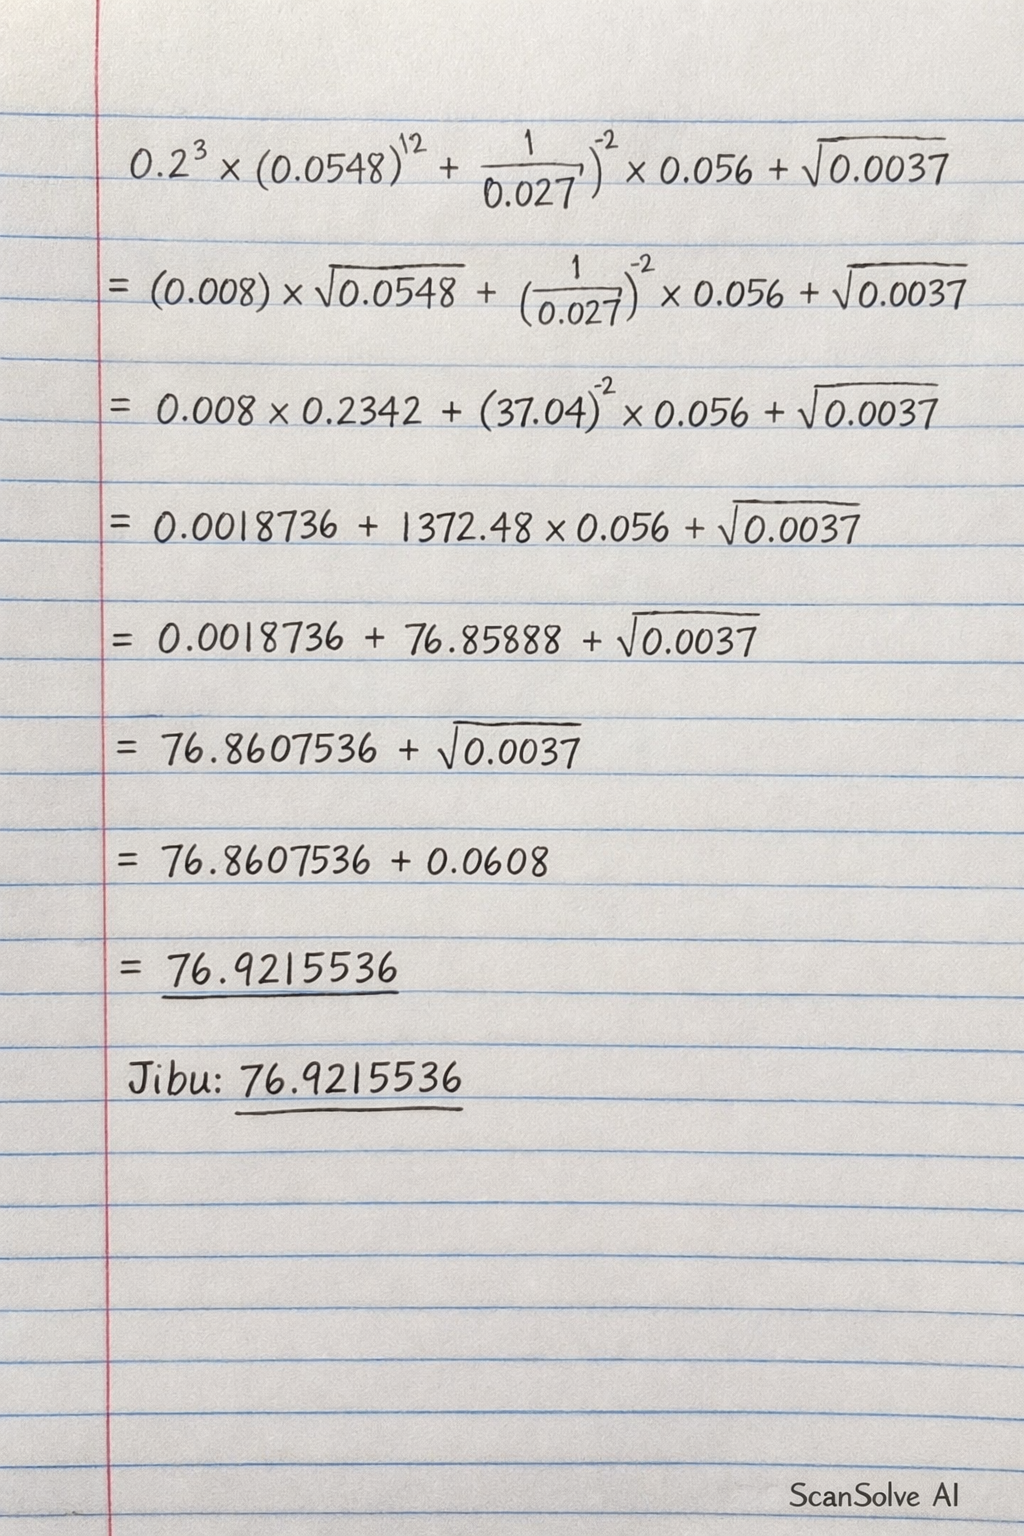 0.2³ × (0.0548)¹² + 1/0.027)⁻² × 0.056 + √0.0037
= (0.008) × √0.0548 + (1/0.027)⁻² × 0.056 + √0.0037
= 0.008 × 0.2342 + (37.04)⁻² × 0.056 + √0.0037
= 0.0018736 + 1372.48 × 0.056 + √0.0037
= 0.0018736 + 76.85888 + √0.0037
= 76.8607536 + √0.0037
= 76.8607536 + 0.0608
= 76.9215536
Jibu: 76.9215536
ScanSolve AI